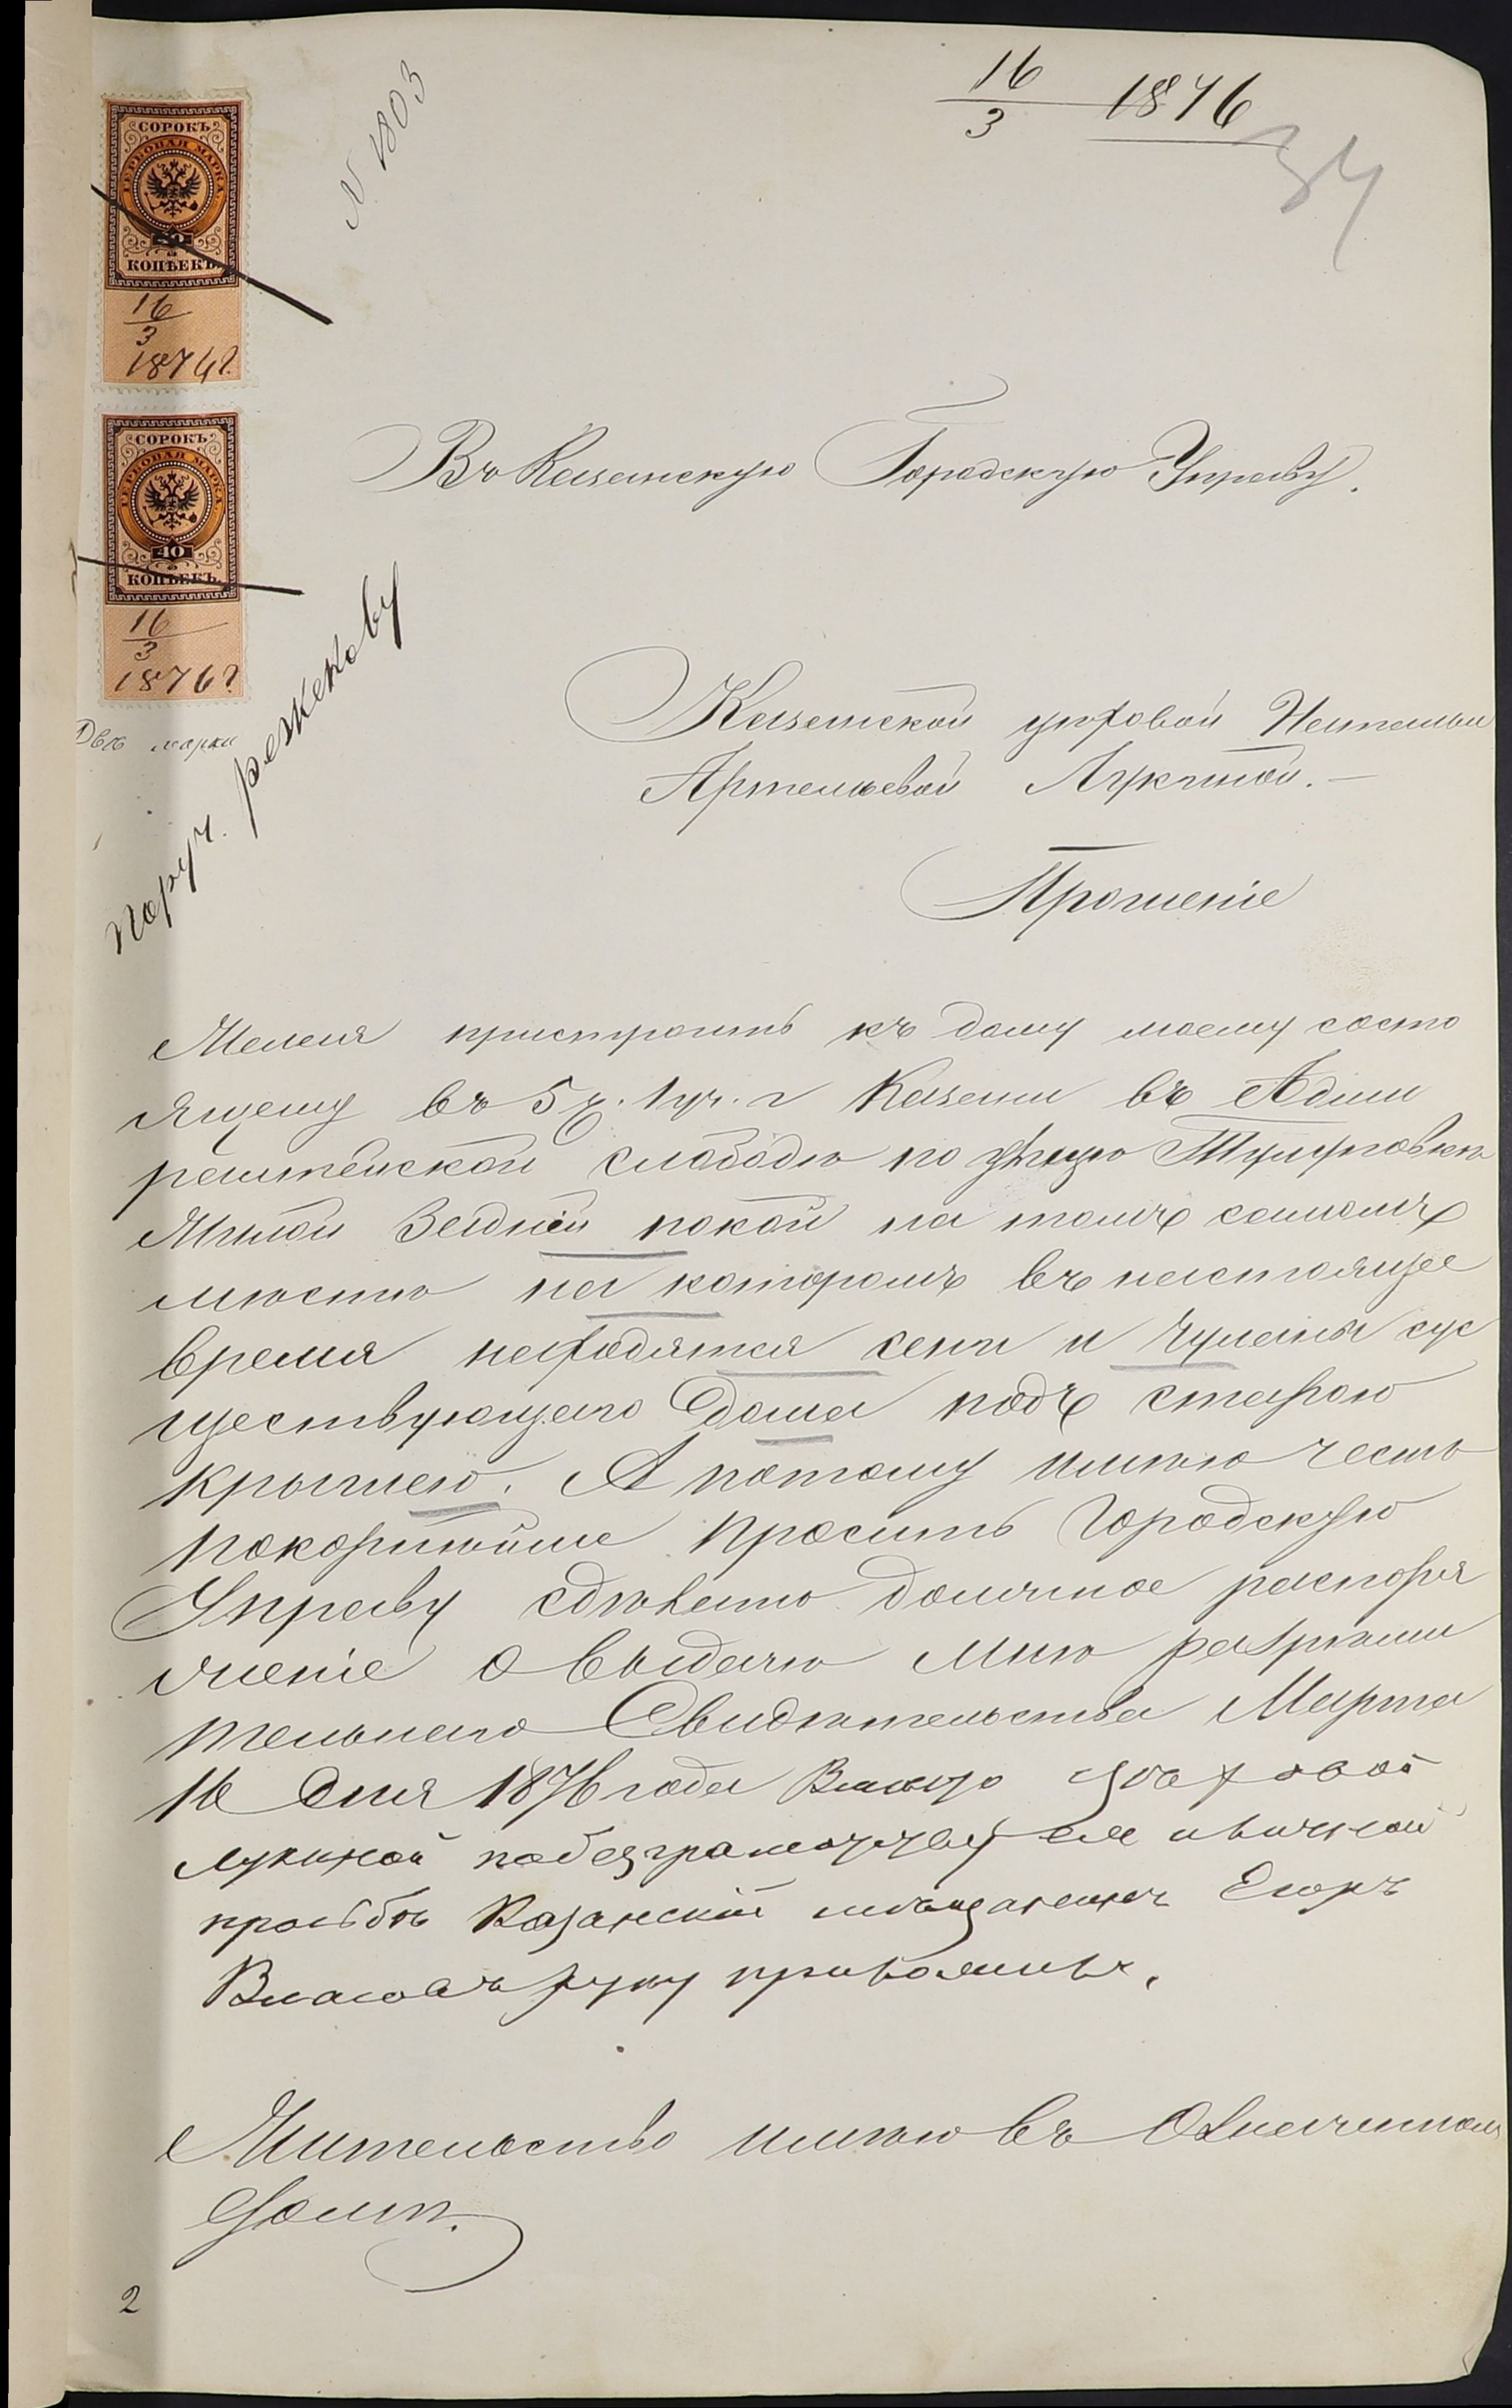 16/3 1876
34
N 1803
СОРОКЪ
ГЕРБОВАЯ МАРКА
КОПѢЕКЪ
16/3
1876 г.
СОРОКЪ
ГЕРБОВАЯ МАРКА
40
КОПѢЕКЪ
16/3
1876 г
Двѣ марки
Поруч.
Въ Казанскую Городскую Управу.
Казанской цеховой Натальи
Артемьевой Лукиной.
Прошеніе
Желая пристроить къ дому моему состо
ящему въ 5 ч. 1 уч. г Казани въ Адми
ралтейской слободѣ по улицѣ
Жилой Задній покой на томъ самомъ
мѣстѣ на которомъ въ настоящее
время находятся сени и Чуланы сус
ществующаго дома подъ старою
крышею. А потому имѣю честь
покорнѣйше просить Городскую
Управу сдѣлать должное распоря
женіе о выдачѣ мнѣ разрѣши
тельнаго Свидѣтельства Марта
16 дня 1876 года цѣховой
Лукиной по безграмотству еѣ иличной
прозьбѣ Казанскій мѣщанинъ Егоръ
Власовъ руку приложилъ.
Жительство имѣю въ Означенномъ
домѣ.
2